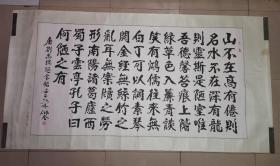 山不在高有僊則
名水不在深有龍
則靈斯是陋室唯
吾德馨苔痕上階
綠草色入簾青談
笑有鴻儒往來無
白丁可以調素琴
閱金經無絲竹之
亂耳無案牘之勞
形南陽諸葛廬西
蜀子雲亭孔子曰
何陋之有
唐劉禹錫陋室銘